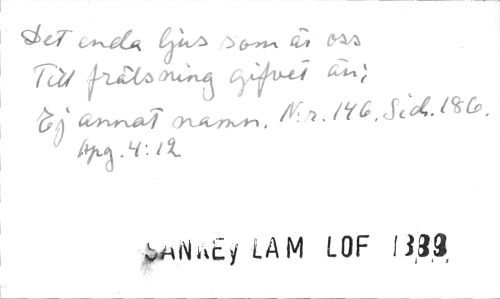 Det enda ljus som är oss
Till frälsning gifvet än;
Ej annat namn. N:r. 146. Sid. 186.
Apg. 4:12
SANKEY LAM LOF 1889